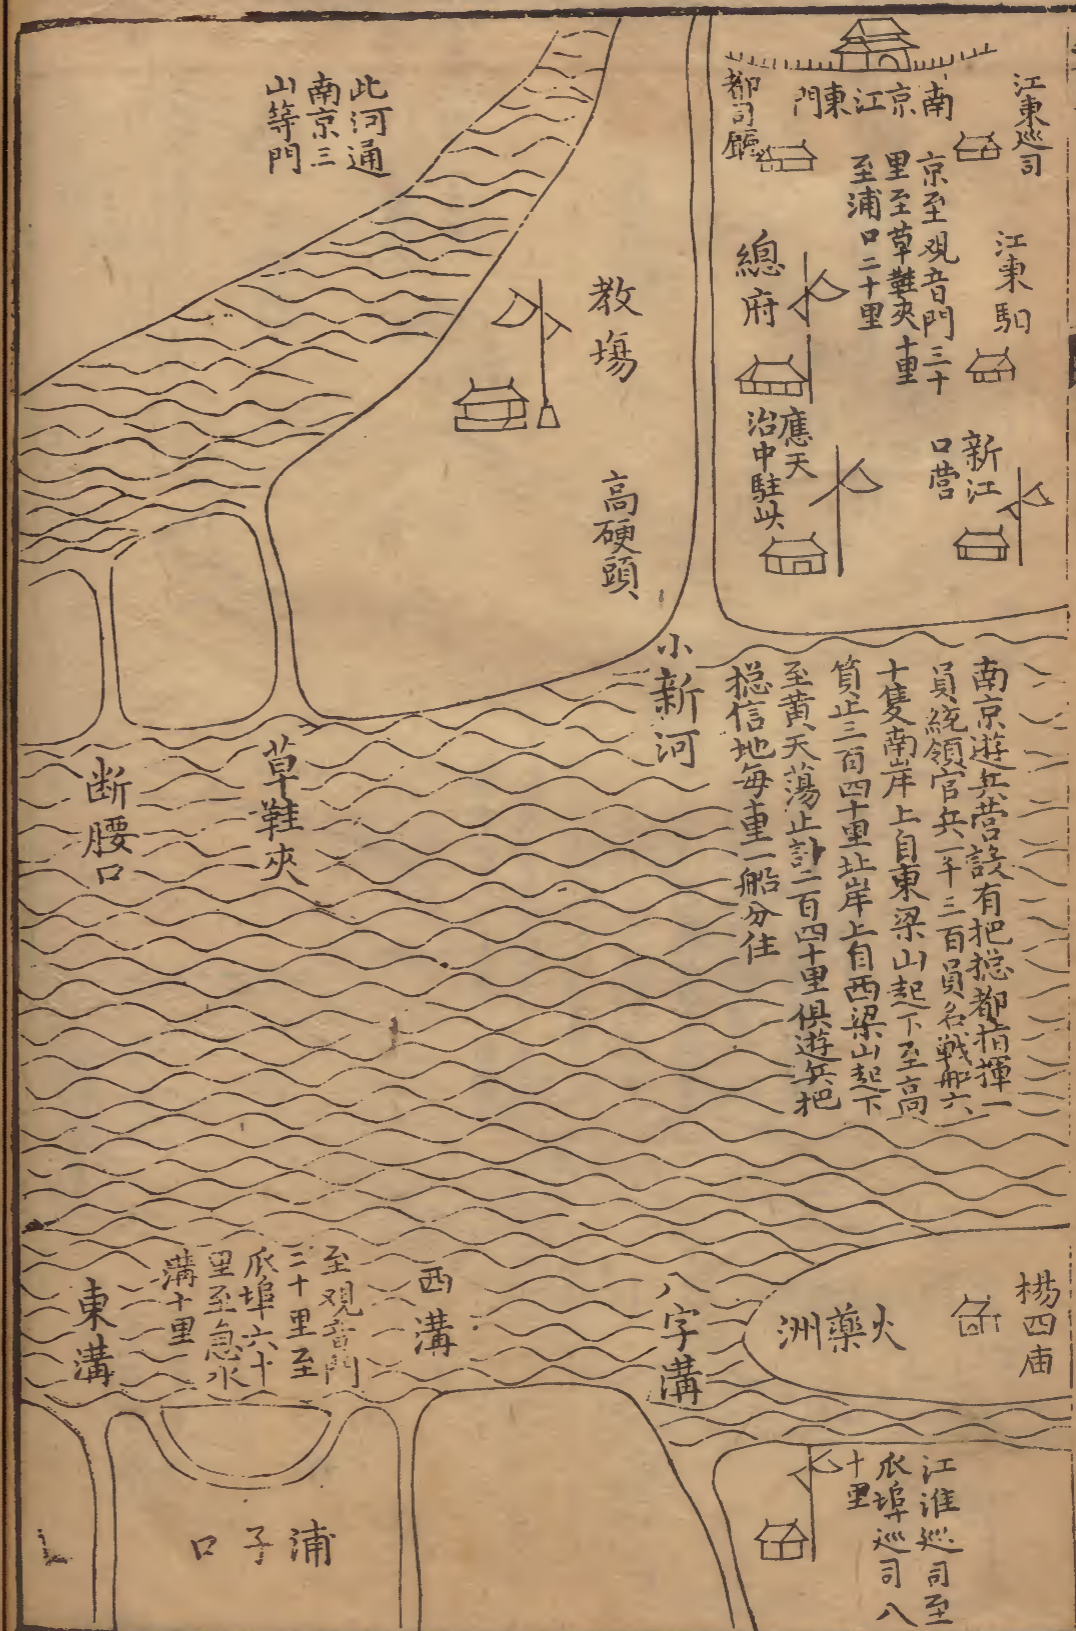 江東巡司
南京江東門
都司廳
京至观音門三十
里至草鞋夾十里
至浦口二十里
江東馹
總府
應天
治中駐此
新江
口营
教塲
高硬頭
此河通
南京三
山等門
小新河
南京遊兵营設有把捴都指揮一
員統領官兵一千三百員名戦船六
十隻南岸上自東梁山起下至高
資止三百四十里北岸上自西梁山起下
至黄天蕩止計二百四十里俱遊兵把
捴信地每重一船分住
草鞋夾
断腰口
楊四庙
火藥洲
八字溝
西溝
至观音門
二十里至
瓜埠六十
里至急水
溝十里
東溝
江淮巡司至
瓜埠巡司八
十里
浦子口